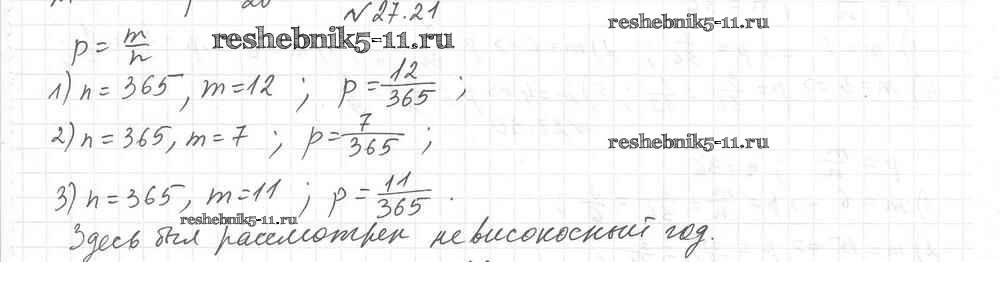 №27.21
p = m/n reshebnik5-11.ru reshebnik5-11.ru
1) n = 365, m = 12 ; p = 12/365 ;
2) n = 365, m = 7 ; p = 7/365 ; reshebnik5-11.ru
3) n = 365, m = 11 ; p = 11/365 .
reshebnik5-11.ru
Здесь был рассмотрен невисокосный год.